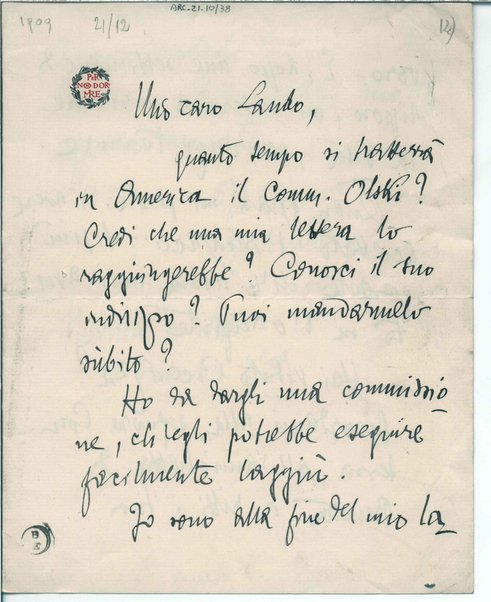 ARC.21.10/38
1909 21/12
PER
NON DOR
MIRE
Mio caro Lando,
quanto tempo si tratterrà
in America il Comm. Olski?
Credi che una mia lettera lo
raggiungerebbe? Conosci il suo
indirizzo? Puoi mandarmelo
sùbito?
Ho da dargli una commissio
ne, ch'egli potrebbe eseguire
facilmente laggiù.
Io sono alla fine del mio la_